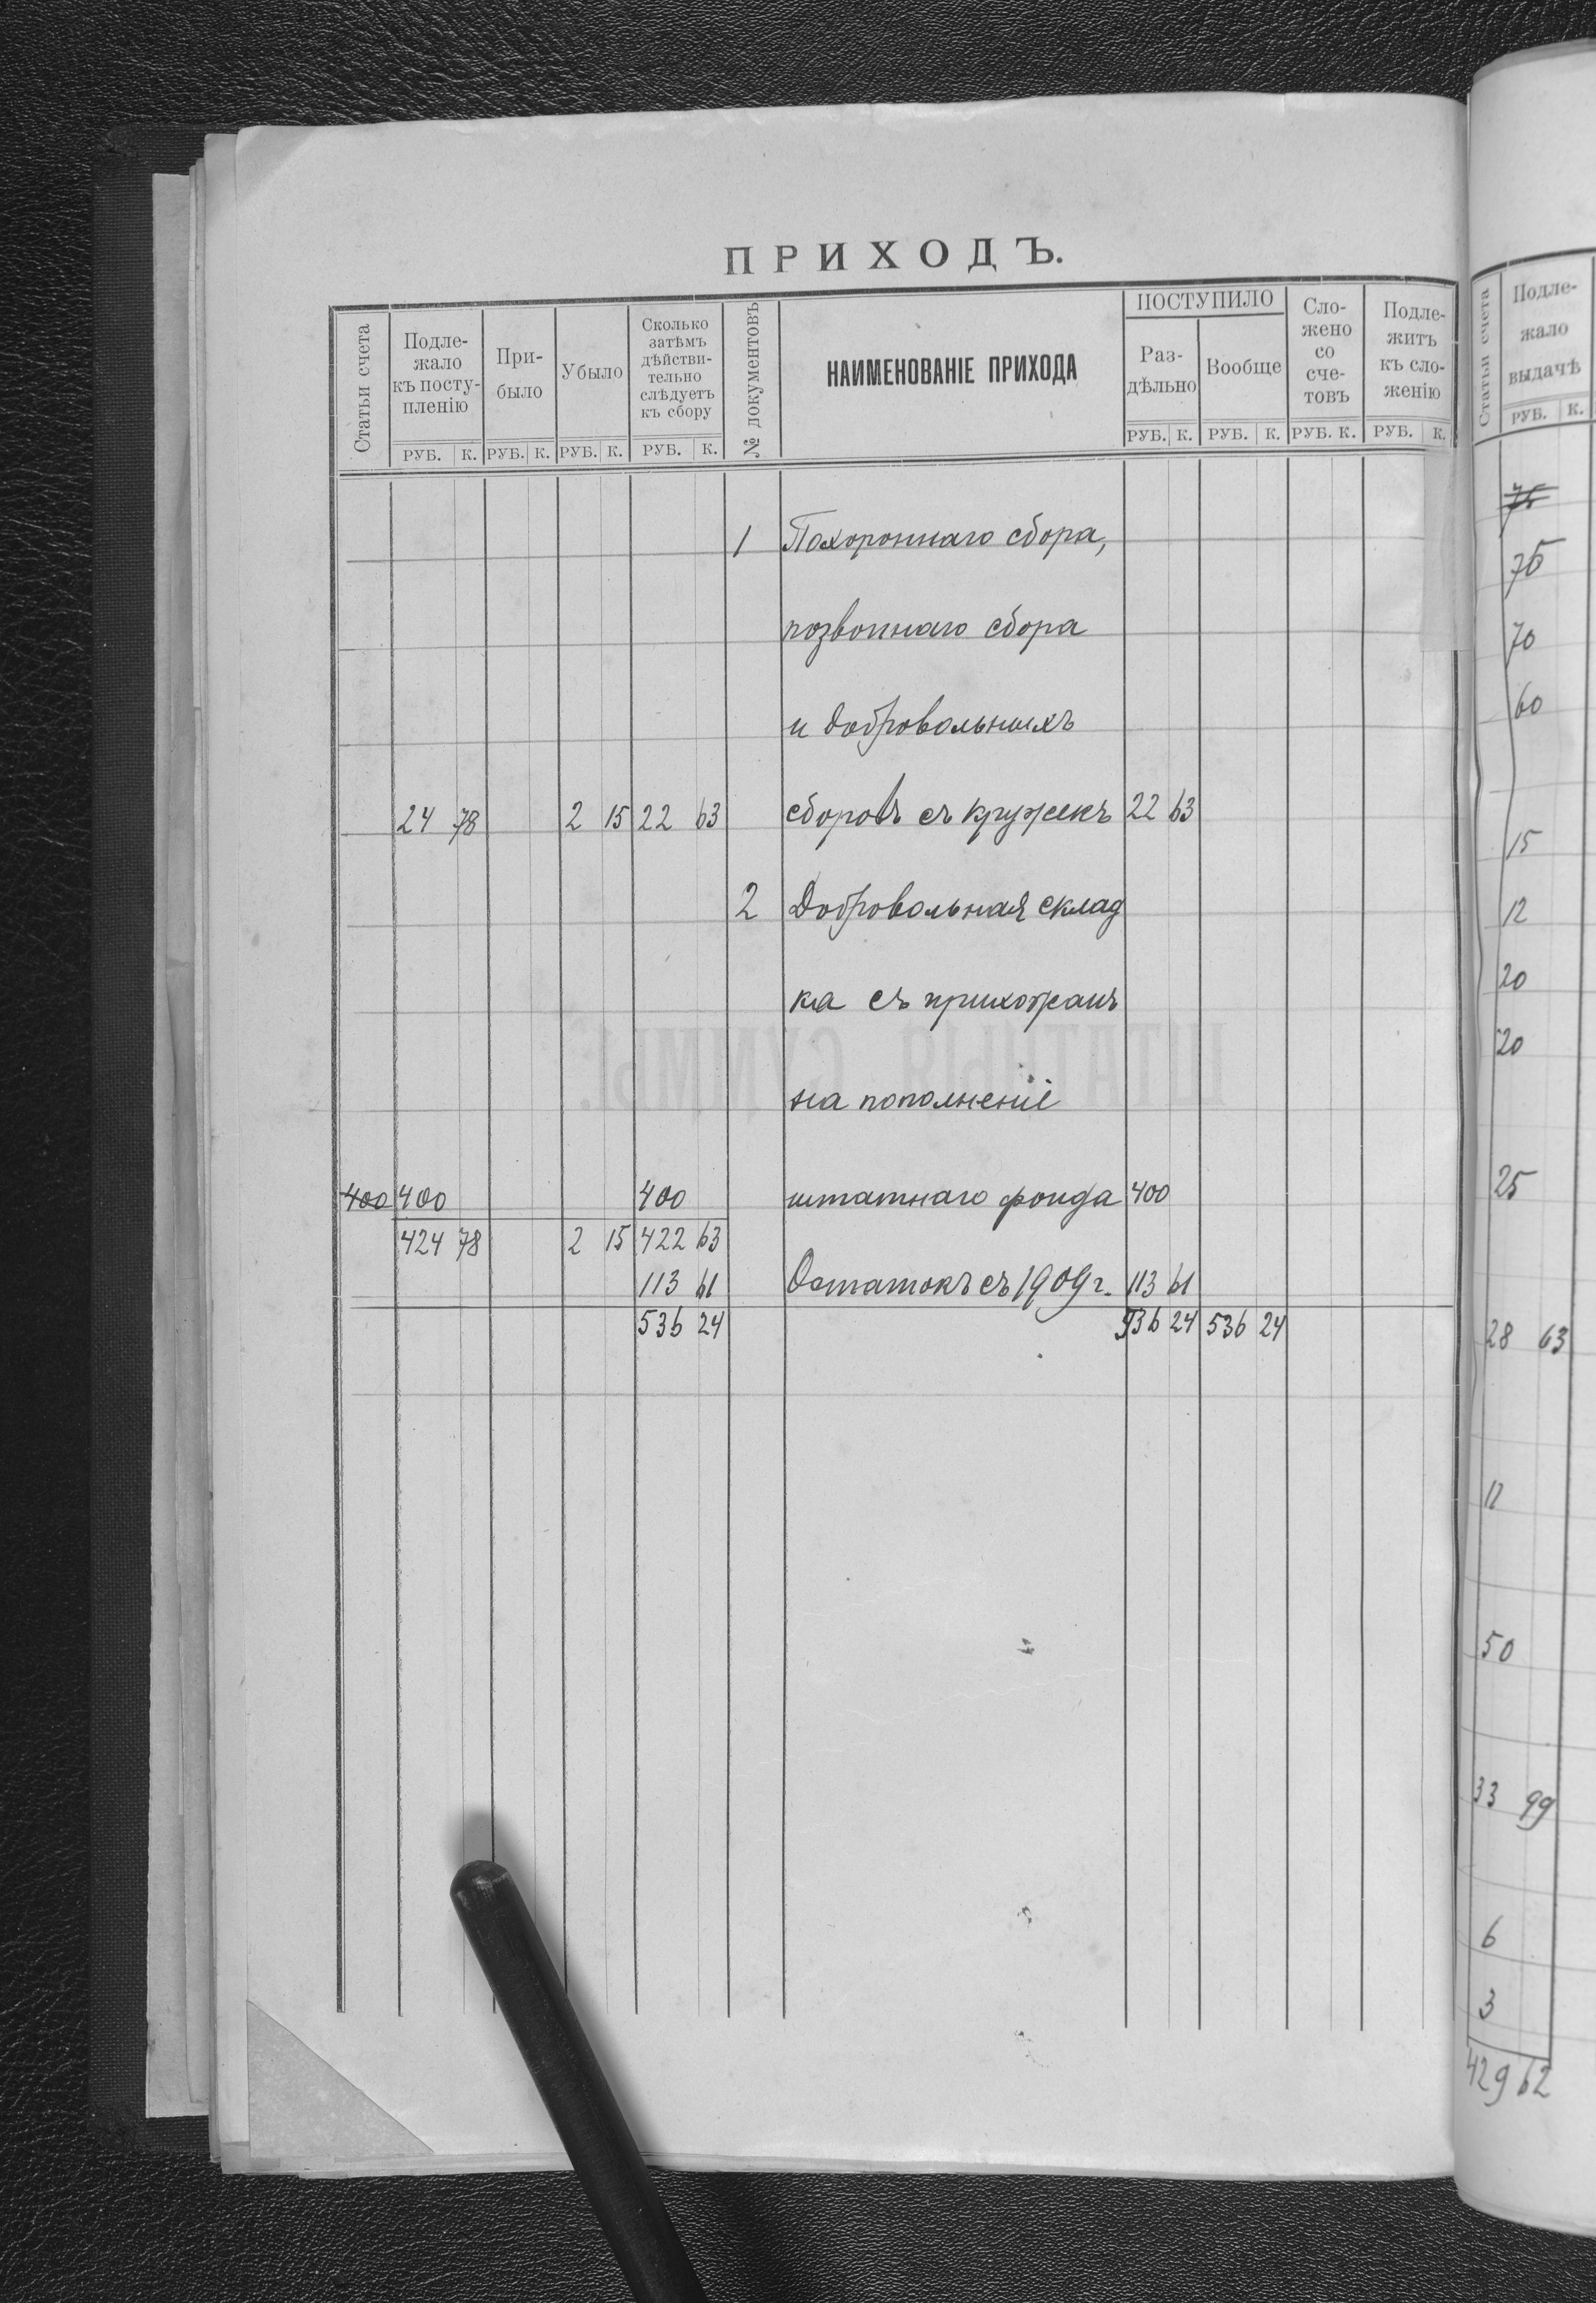 ПРИХОДЪ.
Статьи счета
Подле-
жало
къ посту-
пленію
При-
было
Убыло
Сколько
затѣмъ
дѣйстви-
тельно
слѣдуетъ
къ сбору
№ документовъ
НАИМЕНОВАНІЕ ПРИХОДА
ПОСТУПИЛО
Раз-
дѣльно
Вообще
Сло-
жено
со
сче-
товъ
Подле-
житъ
къ сло-
женію
РУБ. К. РУБ. К. РУБ. К. РУБ. К. РУБ. К. РУБ. К. РУБ. К. РУБ. К.
1 Похороннаго сбора,
позвоннаго сбора
и добровольныхъ
24 78 2 15 22 63 сборовъ съ кружекъ 22 63
2 Добровольная склад
ка съ прихожанъ
на пополненіе
400 400 400 штатнаго фонда 400
424 78 2 15 422 63
113 61 Остатокъ съ 1909 г. 113 61
536 24 536 24 536 24
Статьи счета
Подле-
жало
выдачѣ
РУБ. К.
75
75
70
60
15
12
20
20
25
28 63
12
50
33 99
6
3
429 62